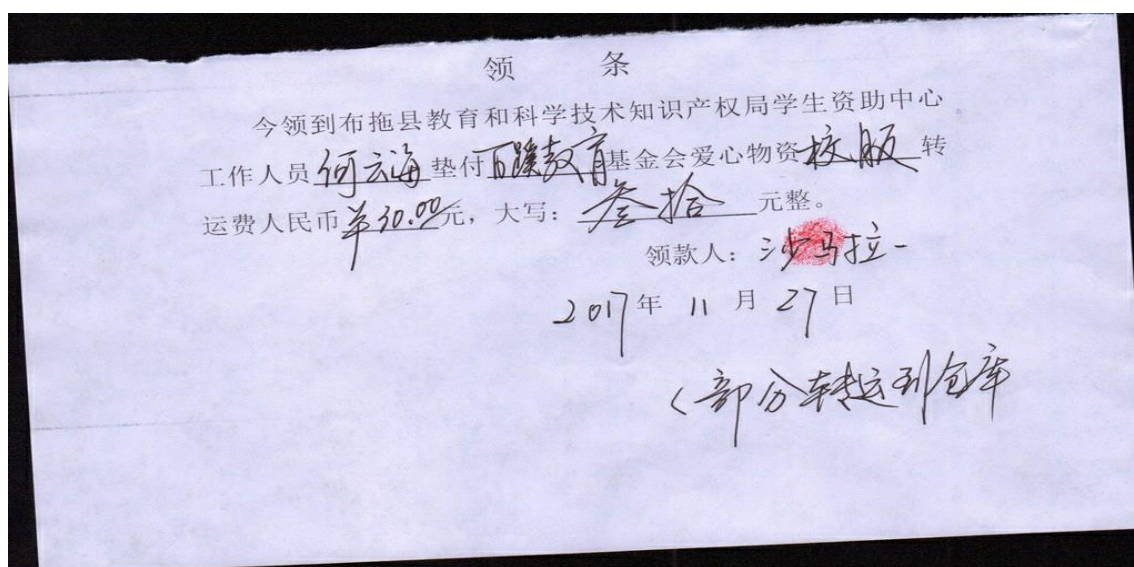 领 条
今领到布拖县教育和科学技术知识产权局学生资助中心
工作人员何云海垫付百蹊教育基金会爱心物资校服转
运费人民币¥30.00元，大写：叁拾元整。
领款人：沙马拉一
2017年11月27日
（部分转运到仓库